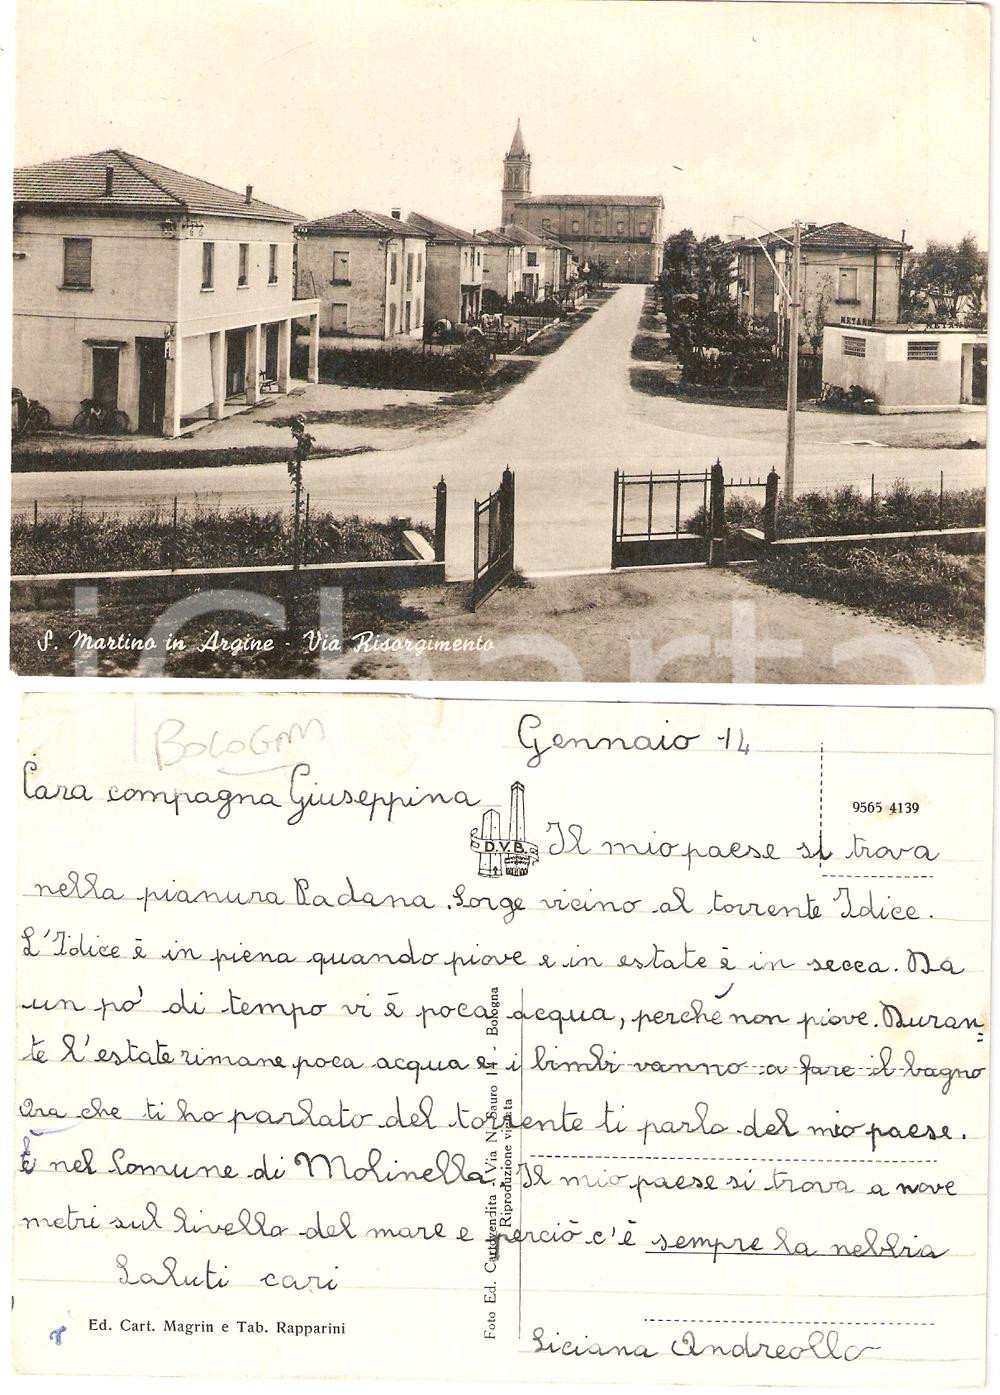 METANO
METANO
S. Martino in Argine - Via Risorgimento
iCharta
BOLOGNA
Gennaio 14
Cara compagna Giuseppina
9565 4139
D.V.B.
Il mio paese si trova
nella pianura Padana. Sorge vicino al torrente Idice.
L'Idice è in piena quando piove e in estate è in secca. Da
un po' di tempo vi è poca acqua, perché non piove. Duran=
te l'estate rimane poca acqua e i bimbi vanno a fare il bagno
Ora che ti ho parlato del torrente ti parlo del mio paese.
è nel Comune di Molinella. Il mio paese si trova a nove
metri sul livello del mare e perciò c'è sempre la nebbia
Saluti cari
Foto Ed. Cartovendita - Via N. Sauro 14 - Bologna
Riproduzione vietata
Ed. Cart. Magrin e Tab. Rapparini
Liciana Andreollo